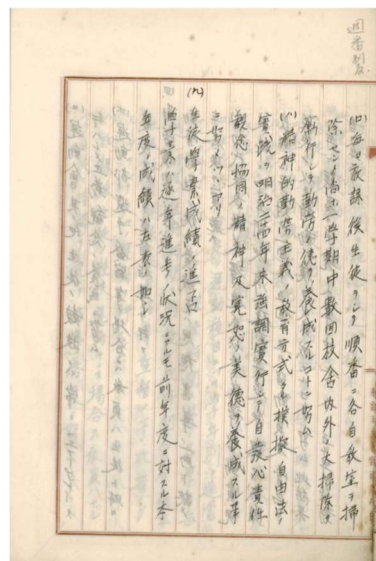 週番制
(ロ)毎日放課後生徒ヲシテ順番ニ各自教室ヲ掃
除セシメ尚一学期中数回校舎内外ノ大掃除ヲ
断行シテ勤労ノ徳ヲ養成スルコトニ努ム
(ハ)精神的勤労主義ノ教育方式タル模擬自由法ノ
実践ハ明治 年来 調実行シテ自発心責任
観念協同ノ精神及寛恕ノ美徳ヲ養成スル事
ニ努メツヽアリ
(九)生徒学業ノ成績ノ進否
ハ逐年進歩ノ状況ニアルモ前年度ニ対スル本
年度ノ成績ハ左表ノ如シ